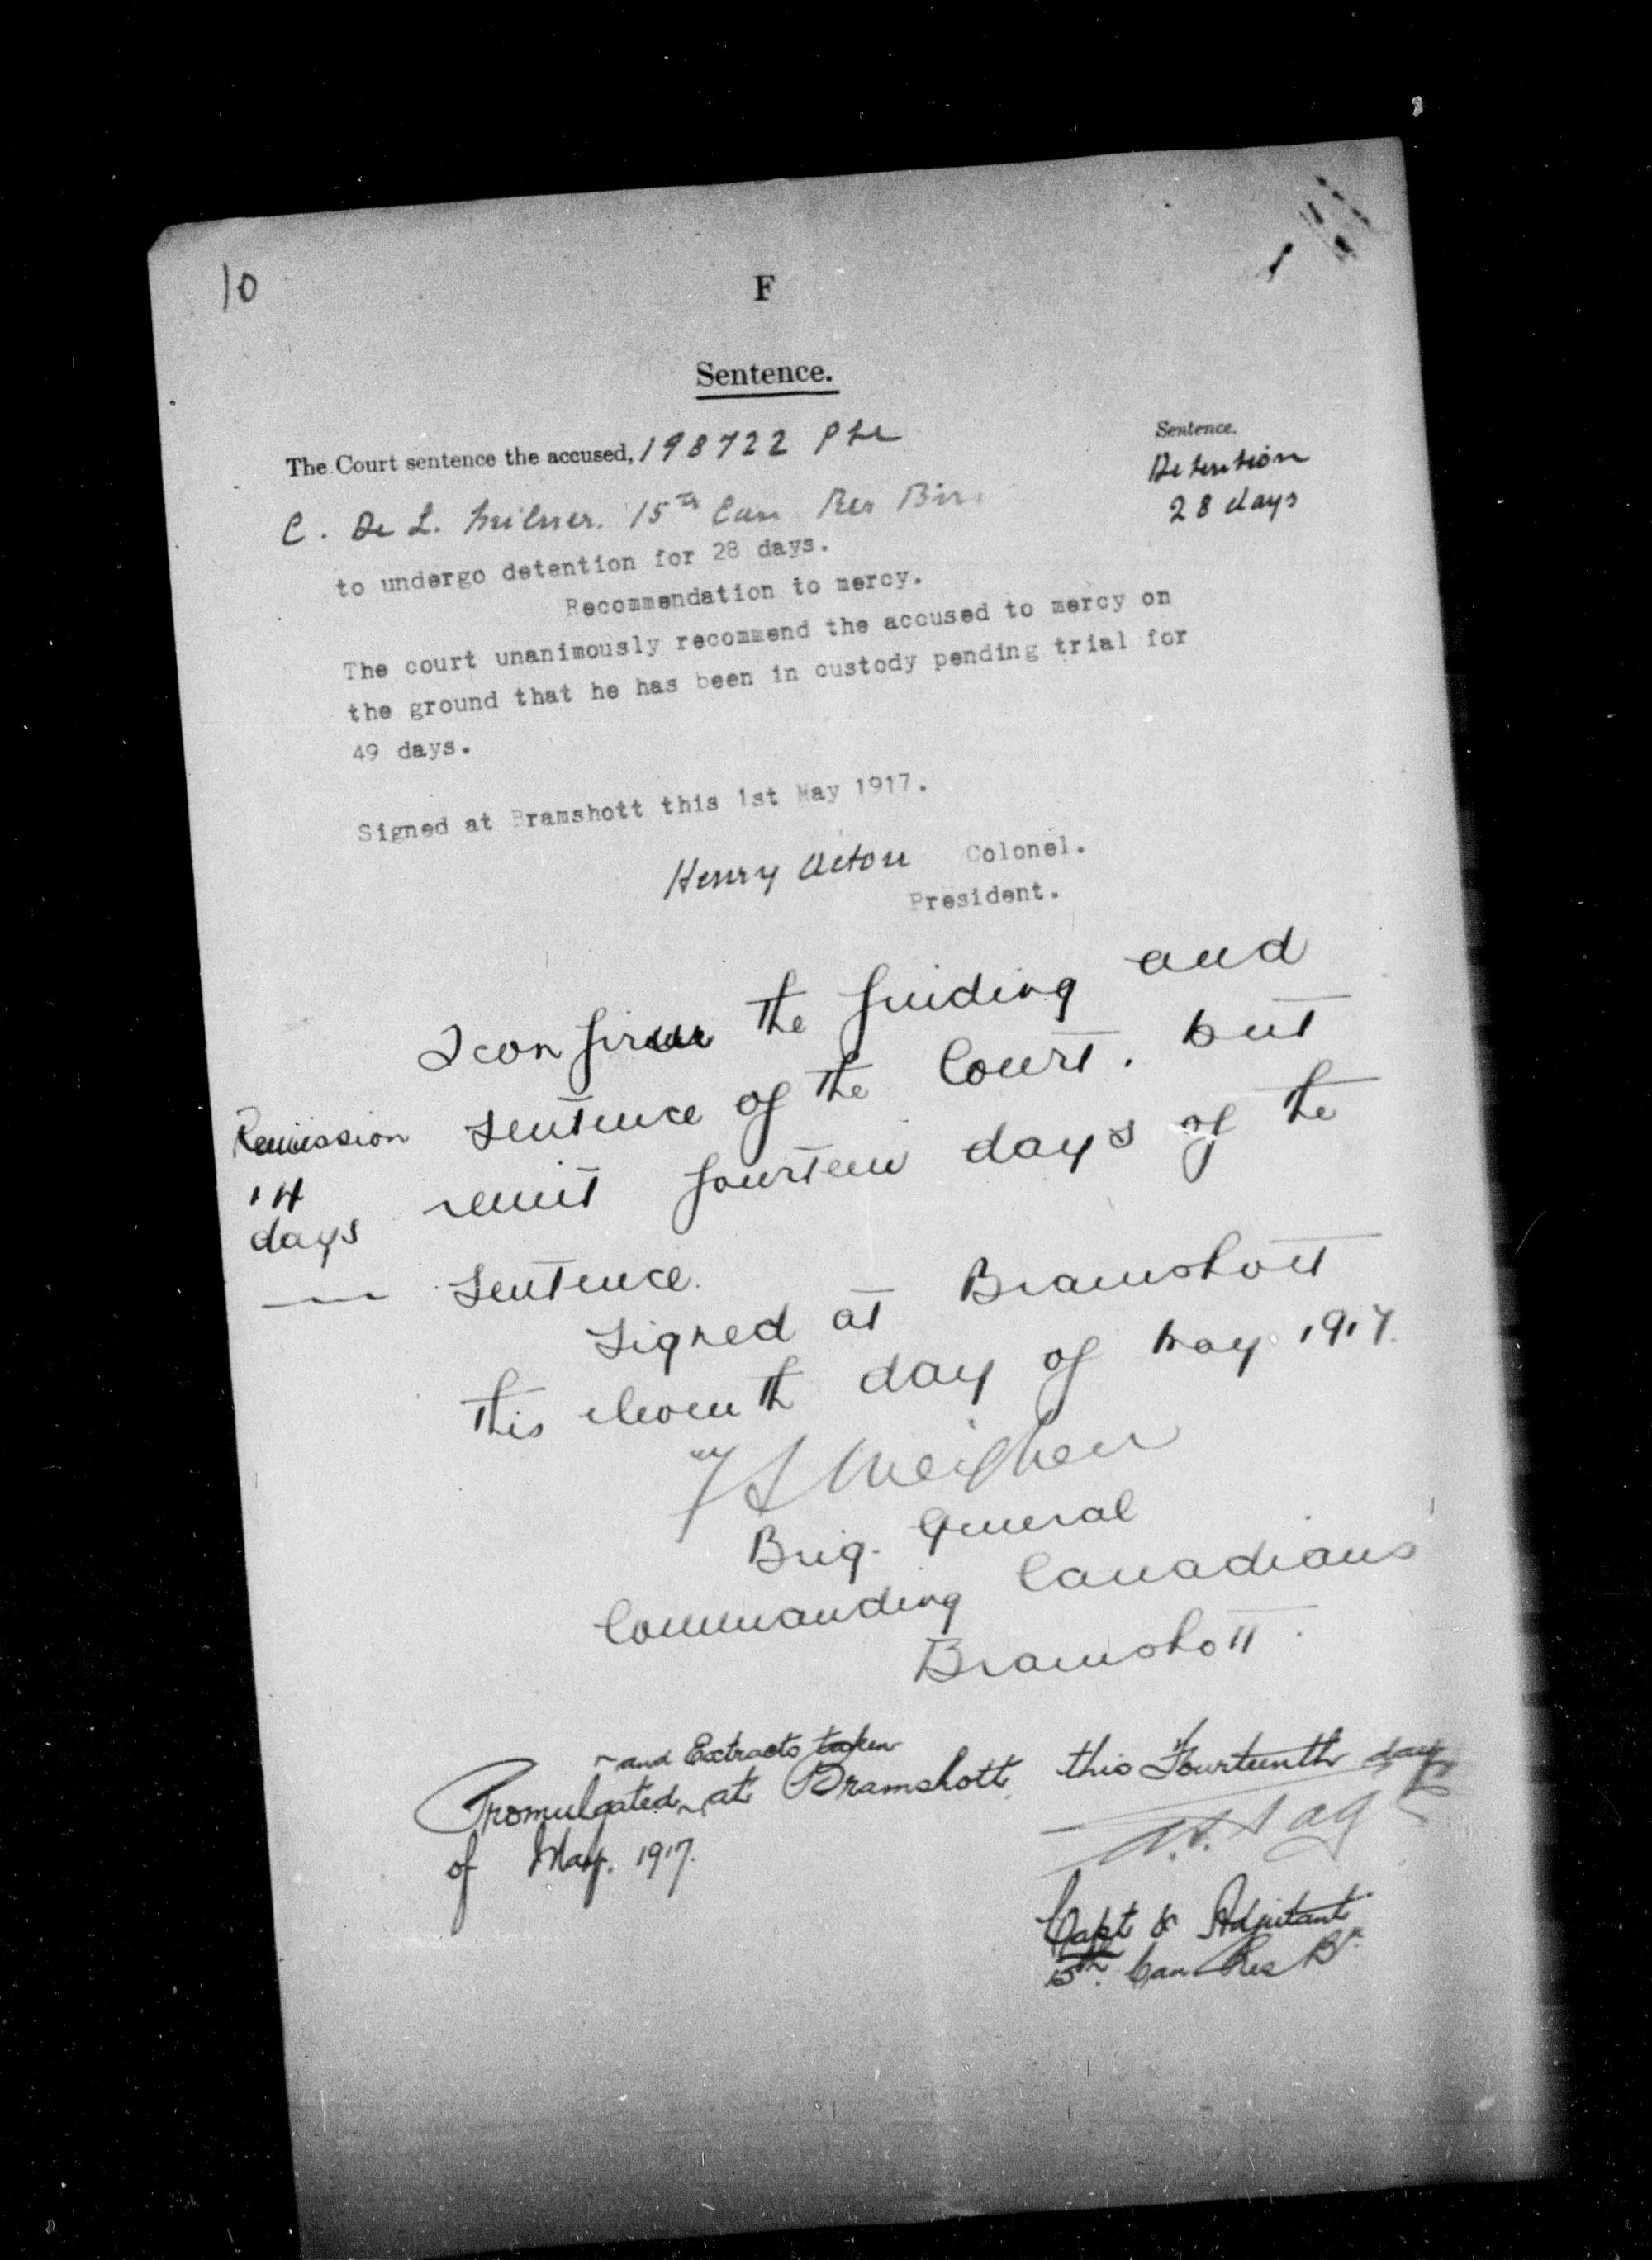 10
F
Sentence.
The Court sentence the accused, 198722 Pte
C. De L. Milner. 15th Can Res Bn.
Sentence.
Detention
28 days
to undergo detention for 28 days.
Recommendation to mercy.
The court unanimously recommend the accused to mercy on
the ground that he has been in custody pending trial for
49 days.
Signed at Bramshott this 1st May 1917.
Henry Acton Colonel.
President.
I confirm the finding and
sentence of the Court. but
remit fourteen days of the
sentence.
Remission
14
days
Signed at Bramshott
this eleventh day of May 1917.
F S Meighen
Brig. General
Commanding Canadians
Bramshott.
and Extracts taken
Promulgated at Bramshott this Fourteenth day
of May. 1917.
Capt & Adjutant
15th. Can Res Bn.